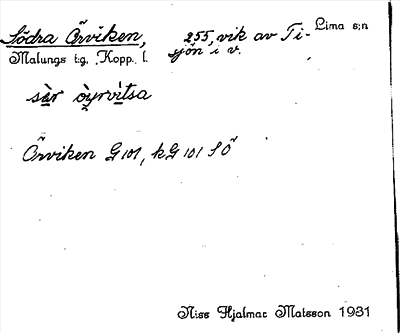 Södra Örviken, 255, vik av Ti- Lima s:n
Malungs t:g. Kopp. l. sjön i v.
sèr òyrvìtsa
Örviken G 101, kG 101 SÖ
Niss Hjalmar Matsson 1931